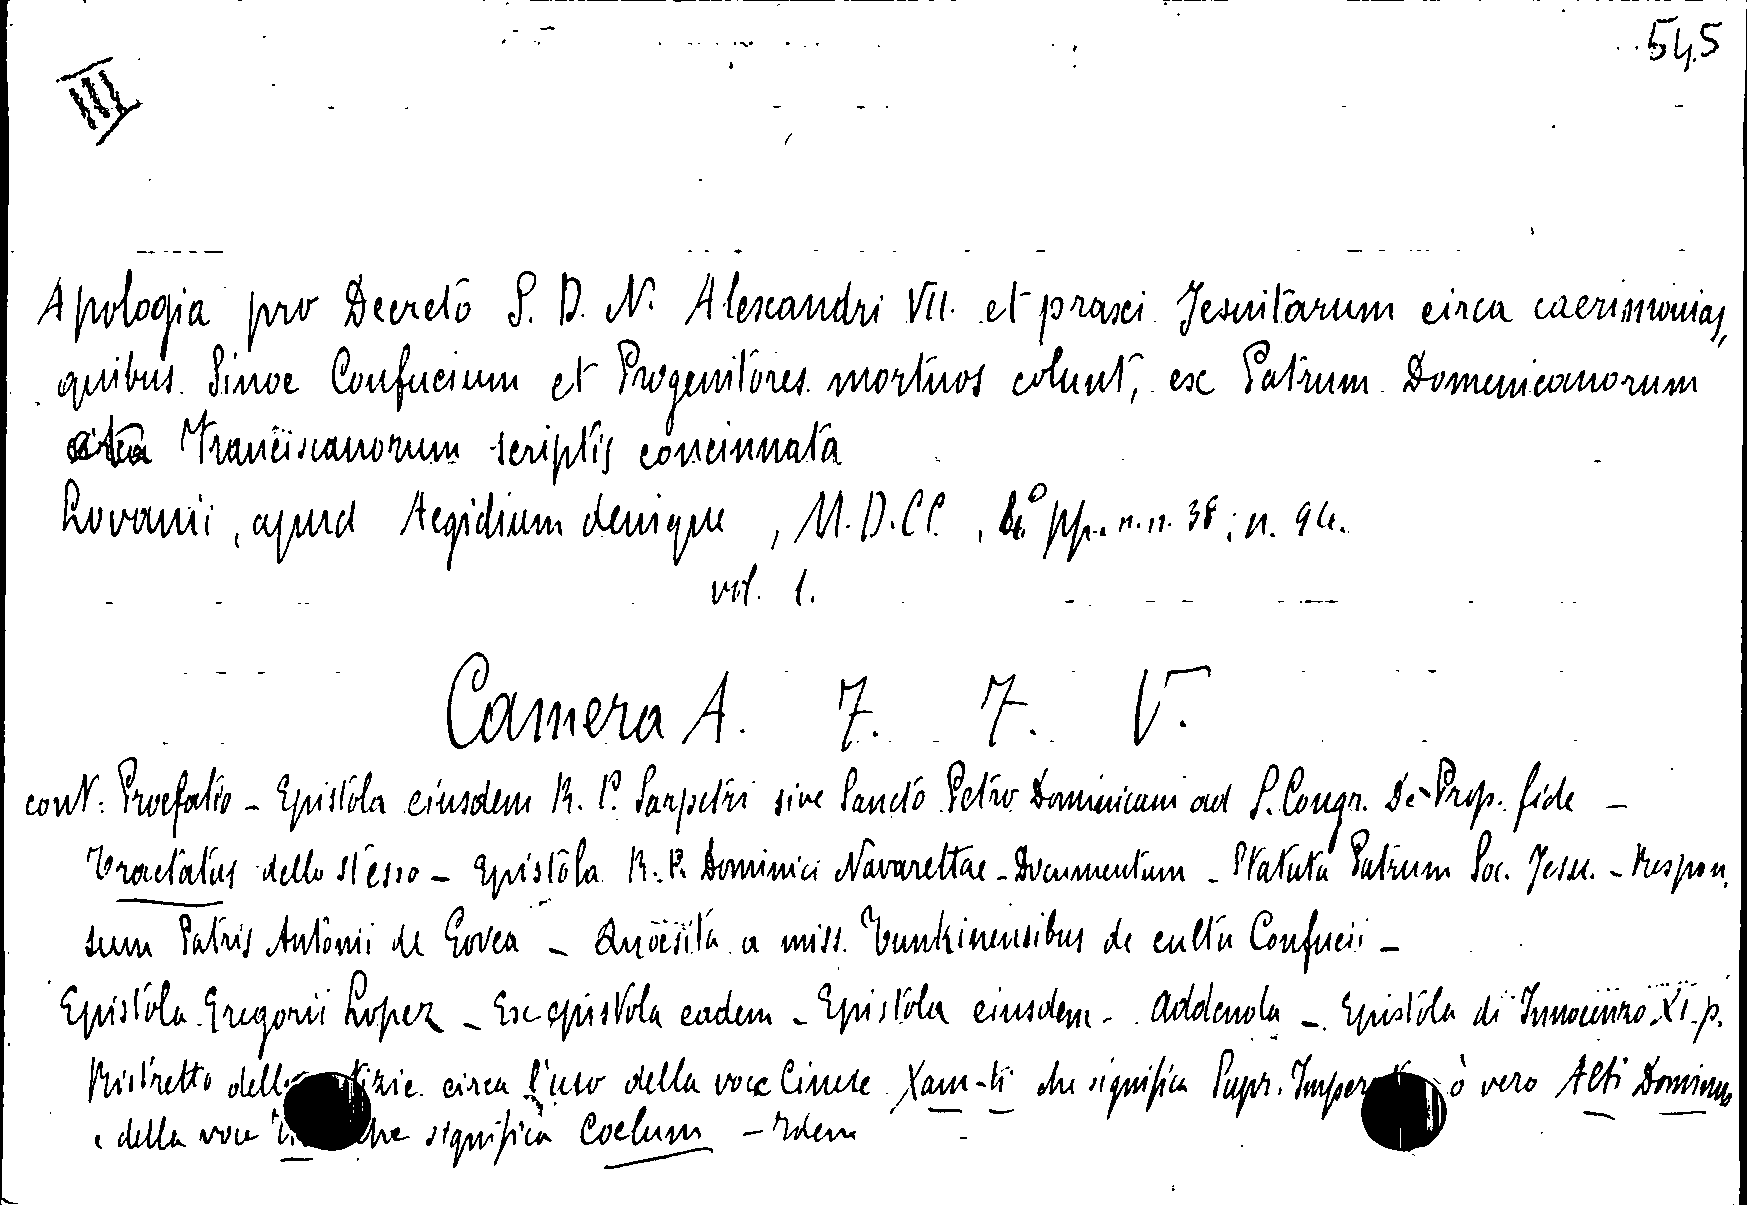 545
III
Apologia pro Decreto S. D. N. Alexandri VII. et praxi Jesuitarum circa caerimonias,
quibus Sinae Confucium et Progenitores mortuos colunt, ex Patrum Domenicanorum
Franciscanorum scriptis concinnata
Lovanii, apud Aegidium denique, M.D.CC., 4° pp. n.n. 38; n. 94.
vol. 1.
Camera A. 7. 7. V.
cont: Praefatio - Epistola eiusdem R. P. Sarpetri sive Sancto Petro Dominicani ad S. Congr. De Prop. fide -
Tractatus dello stesso - Epistola R. P. Dominici Navarettae - Documentum - Statuta Patrum Soc. Jesu. - Respon
sum Patris Antonii de Govea - Quaesita a miss. Tunkinensibus de cultu Confucii -
Epistola Gregorii Lopez - Ex epistola eadem - Epistola eiusdem - Addenda - Epistola di Innocenzo XI. p.
Ristretto delle circa l'uso della voce Cinese Xam-ti che significa Supr. ò vero Alti Dominus
e della voce che significa Coelum - Idem